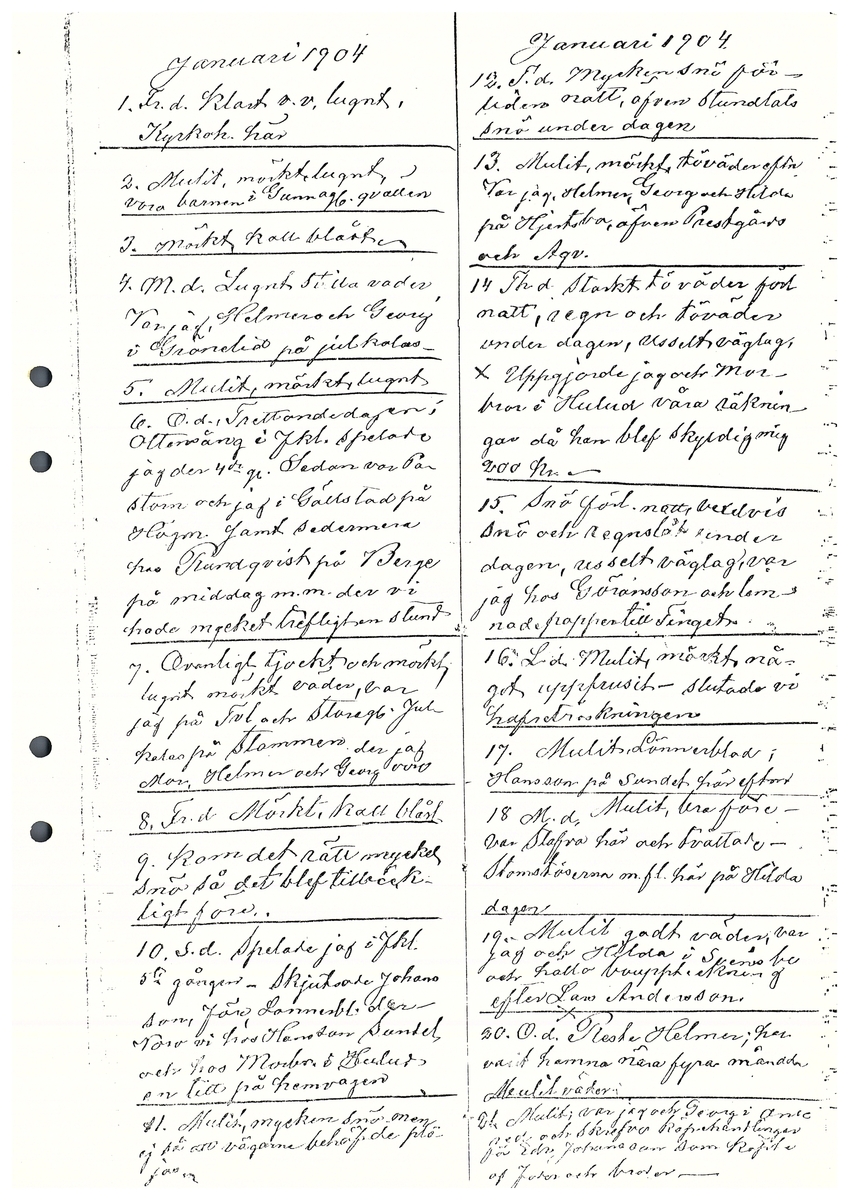 Januari 1904
1. Fr.d. Klart v.v. lugnt,
Kyrkoh. här
2. Mulit, mörkt, lugnt,
vora barnen i Gunnagb. qvällen
3. Mörkt, kall blåst
4. M.d. Lugnt stilla väder,
Var jag, Helmer och Georg
i Grönelid på julkalas
5. Mulit, mörkt, lugnt
6. O.d., Trettondedagen i
Ottensång i Jkl. spelade
jag der 4de g. Sedan var Pa-
storn och jag i Gällstad på
Högm. Samt sedermera
hos Randqvist på Berge
på middag m.m. der vi
hade mycket trefligt en stund
7. Ovanligt tjockt och mörkt,
lugnt mörkt väder, var
jag på Tvl och Storegb. Jul-
kalas på Stommen der jag
Mor, Helmer och Georg voro
8. Fr.d Mörkt, kall blåst
9. Kom det rätt mycket
snö så det blef tillräck-
ligt före.
10. S.d. Spelade jag i Jkl.
5te gången – Skjutsade Johans
son, före Lönnerbl. der
Voro vi hos Hansson Sundet
och hos Morbr. i Hulud
en titt på hemvägen
11. Mulit, mycken snö men
ej på att vägarne behöfde plö-
jas
Januari 1904.
12. T.d. Mycken snö för-
liden natt, äfven stundtals
snö under dagen
13. Mulit, mörkt, töväder eftr
Var jag, Helmer, Georg och Hilda
på Hjertbo, äfven Prestgårds
och Aqv.
14 Th d starkt töväder förl
natt, regn och töväder
under dagen, usselt väglag,
x Uppgjorde jag och Mor-
bror i Hulud våra räknin-
gar då han blef skyldig mig
200 Kr.
15. Snö förl. natt, vexelvis
snö och regnslask under
dagen, usselt väglag, var
jag hos Göransson och lem-
nade papper till Tinget
16. L.d. Mulit, mörkt nå-
got uppfrusit – slutade vi
hafretröskningen
17. Mulit. Lönnerblad,
Hansson på Sundet här eftm
18 M.d. Mulit, bra före –
var Stafva här och tvättade –
Stomstöserna m.fl. här på Hilda
dagen
19. Mulit godt väder, var
jag och Hilda i Svensbo
och hållo bouppteckning
efter Lars Andersson.
x
20. O.d. Reste Helmer, har
varit hemma nära fyra månader
Mulit väder
21. Mulit, var jag och Georg i
och skrefvo köpehandlingar
på Edv. Johansson som köpte
af Johs och broder